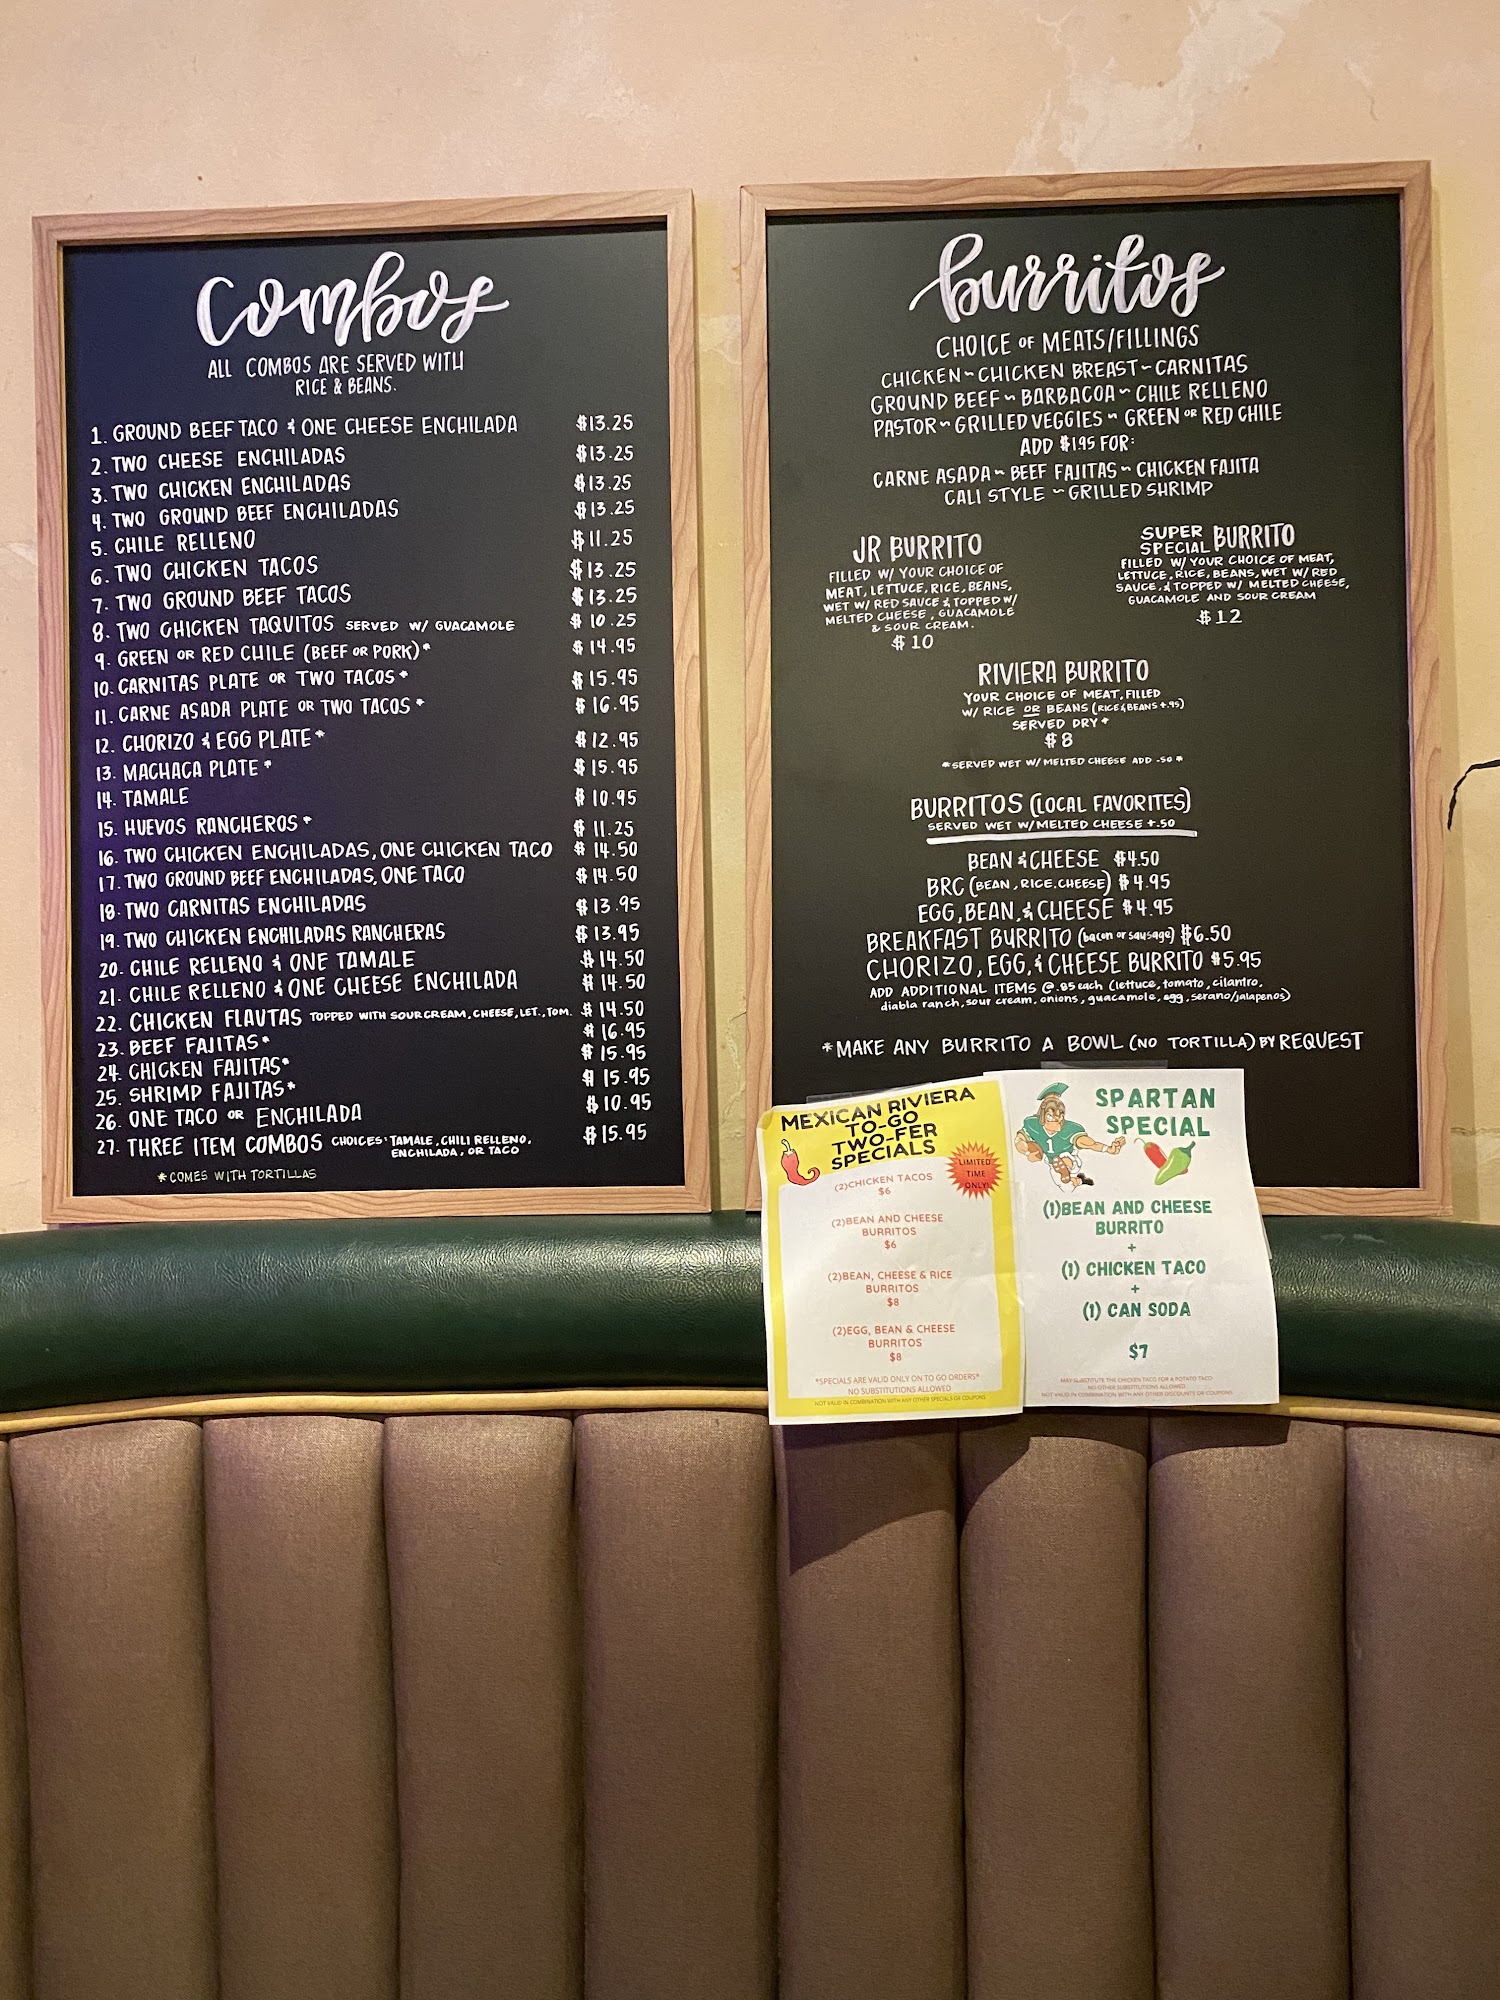 Combos
ALL COMBOS ARE SERVED WITH
RICE & BEANS.
1. GROUND BEEF TACO & ONE CHEESE ENCHILADA $13.25
2. TWO CHEESE ENCHILADAS $13.25
3. TWO CHICKEN ENCHILADAS $13.25
4. TWO GROUND BEEF ENCHILADAS $13.25
5. CHILE RELLENO $11.25
6. TWO CHICKEN TACOS $13.25
7. TWO GROUND BEEF TACOS $13.25
8. TWO CHICKEN TAQUITOS SERVED W/ GUACAMOLE $10.25
9. GREEN OR RED CHILE (BEEF OR PORK)* $14.95
10. CARNITAS PLATE OR TWO TACOS* $15.95
11. CARNE ASADA PLATE OR TWO TACOS* $16.95
12. CHORIZO & EGG PLATE* $12.95
13. MACHACA PLATE* $15.95
14. TAMALE $10.95
15. HUEVOS RANCHEROS* $11.25
16. TWO CHICKEN ENCHILADAS, ONE CHICKEN TACO $14.50
17. TWO GROUND BEEF ENCHILADAS, ONE TACO $14.50
18. TWO CARNITAS ENCHILADAS $13.95
19. TWO CHICKEN ENCHILADAS RANCHERAS $13.95
20. CHILE RELLENO & ONE TAMALE $14.50
21. CHILE RELLENO & ONE CHEESE ENCHILADA $14.50
22. CHICKEN FLAUTAS TOPPED WITH SOUR CREAM, CHEESE, LET., TOM. $14.50
23. BEEF FAJITAS* $16.95
24. CHICKEN FAJITAS* $15.95
25. SHRIMP FAJITAS* $15.95
26. ONE TACO OR ENCHILADA $10.95
27. THREE ITEM COMBOS CHOICES: TAMALE, CHILI RELLENO, $15.95
ENCHILADA, OR TACO
*COMES WITH TORTILLAS
burritos
CHOICE OF MEATS/FILLINGS
CHICKEN ~ CHICKEN BREAST ~ CARNITAS
GROUND BEEF ~ BARBACOA ~ CHILE RELLENO
PASTOR ~ GRILLED VEGGIES ~ GREEN OR RED CHILE
ADD $1.95 FOR:
CARNE ASADA ~ BEEF FAJITAS ~ CHICKEN FAJITA
CALI STYLE ~ GRILLED SHRIMP
JR BURRITO
FILLED W/ YOUR CHOICE OF
MEAT, LETTUCE, RICE, BEANS,
WET W/ RED SAUCE & TOPPED W/
MELTED CHEESE, GUACAMOLE
& SOUR CREAM.
$10
SUPER SPECIAL BURRITO
FILLED W/ YOUR CHOICE OF MEAT,
LETTUCE, RICE, BEANS, WET W/ RED
SAUCE, & TOPPED W/ MELTED CHEESE,
GUACAMOLE AND SOUR CREAM
$12
RIVIERA BURRITO
YOUR CHOICE OF MEAT, FILLED
W/ RICE OR BEANS (RICE & BEANS +.95)
SERVED DRY*
$8
*SERVED WET W/ MELTED CHEESE ADD .50*
BURRITOS (LOCAL FAVORITES)
SERVED WET W/ MELTED CHEESE +.50
BEAN & CHEESE $4.50
BRC (BEAN, RICE, CHEESE) $4.95
EGG, BEAN, & CHEESE $4.95
BREAKFAST BURRITO (bacon or sausage) $6.50
CHORIZO, EGG, & CHEESE BURRITO $5.95
ADD ADDITIONAL ITEMS @ .85 each (lettuce, tomato, cilantro,
diabla ranch, sour cream, onions, guacamole, egg, serano/jalapenos)
*MAKE ANY BURRITO A BOWL (NO TORTILLA) BY REQUEST
MEXICAN RIVIERA
TO-GO
TWO-FER
SPECIALS
LIMITED
TIME
ONLY!
(2)CHICKEN TACOS
$6
(2)BEAN AND CHEESE
BURRITOS
$6
(2)BEAN, CHEESE & RICE
BURRITOS
$8
(2)EGG, BEAN & CHEESE
BURRITOS
$8
*SPECIALS ARE VALID ONLY ON TO GO ORDERS*
NO SUBSTITUTIONS ALLOWED
NOT VALID IN COMBINATION WITH ANY OTHER SPECIALS OR COUPONS
SPARTAN
SPECIAL
1
(1)BEAN AND CHEESE
BURRITO
+
(1) CHICKEN TACO
+
(1) CAN SODA
$7
MAY SUBSTITUTE THE CHICKEN TACO FOR A POTATO TACO
NO OTHER SUBSTITUTIONS ALLOWED
NOT VALID IN COMBINATION WITH ANY OTHER DISCOUNTS OR COUPONS